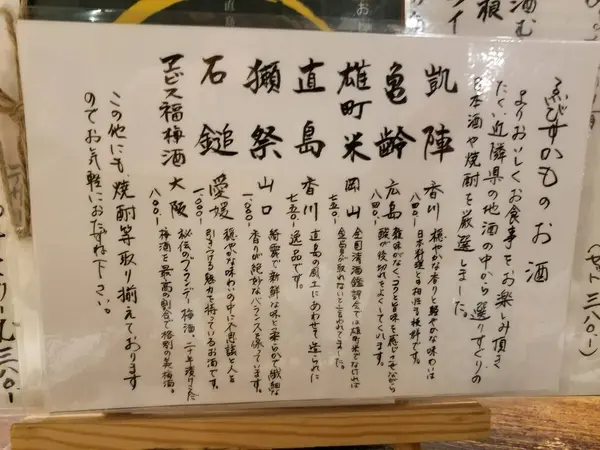 ゑびすかものお酒
よりおいしくお食事をお楽しみ頂き
たく近隣県の地酒の中から選りすぐりの
日本酒や焼酎を厳選しました。
凱陣 香川 八四〇.-
穏やかな香りと軽やかな味わいは
日本料理との相性も抜群です。
亀齢 広島 八四〇.-
雑味がなく、コクと旨味を感じさせながら
酸が後切れをよくしてくれます。
雄町米 岡山 七五〇.-
全国清酒鑑評会では雄町米でなければ
金賞が取れないと言われてました。
直島 香川 七五〇.-
直島の風土にあわせて造られた
逸品です。
獺祭 山口
綺麗で新鮮な味と柔らかで繊細な
香りが絶妙なバランスを保っています。
石鎚 愛媛 一、〇〇〇.-
穏やかな味わいの中に不思議と人を
引きつける魅力を持っているお酒です。
ヱビス福梅酒 大阪 八〇〇.-
秘伝のブランデー梅酒、二十年漬けこんだ
梅酒を最高の割合で格別の美梅酒。
この他にも、焼酎等取り揃えております
のでお気軽にお尋ね下さい。